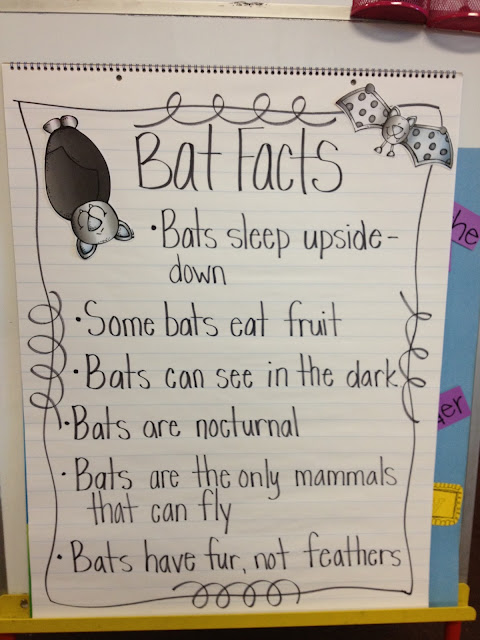 Bat Facts
• Bats sleep upside-
down
• Some bats eat fruit
• Bats can see in the dark
• Bats are nocturnal
• Bats are the only mammals
that can fly
• Bats have fur, not feathers
he
er